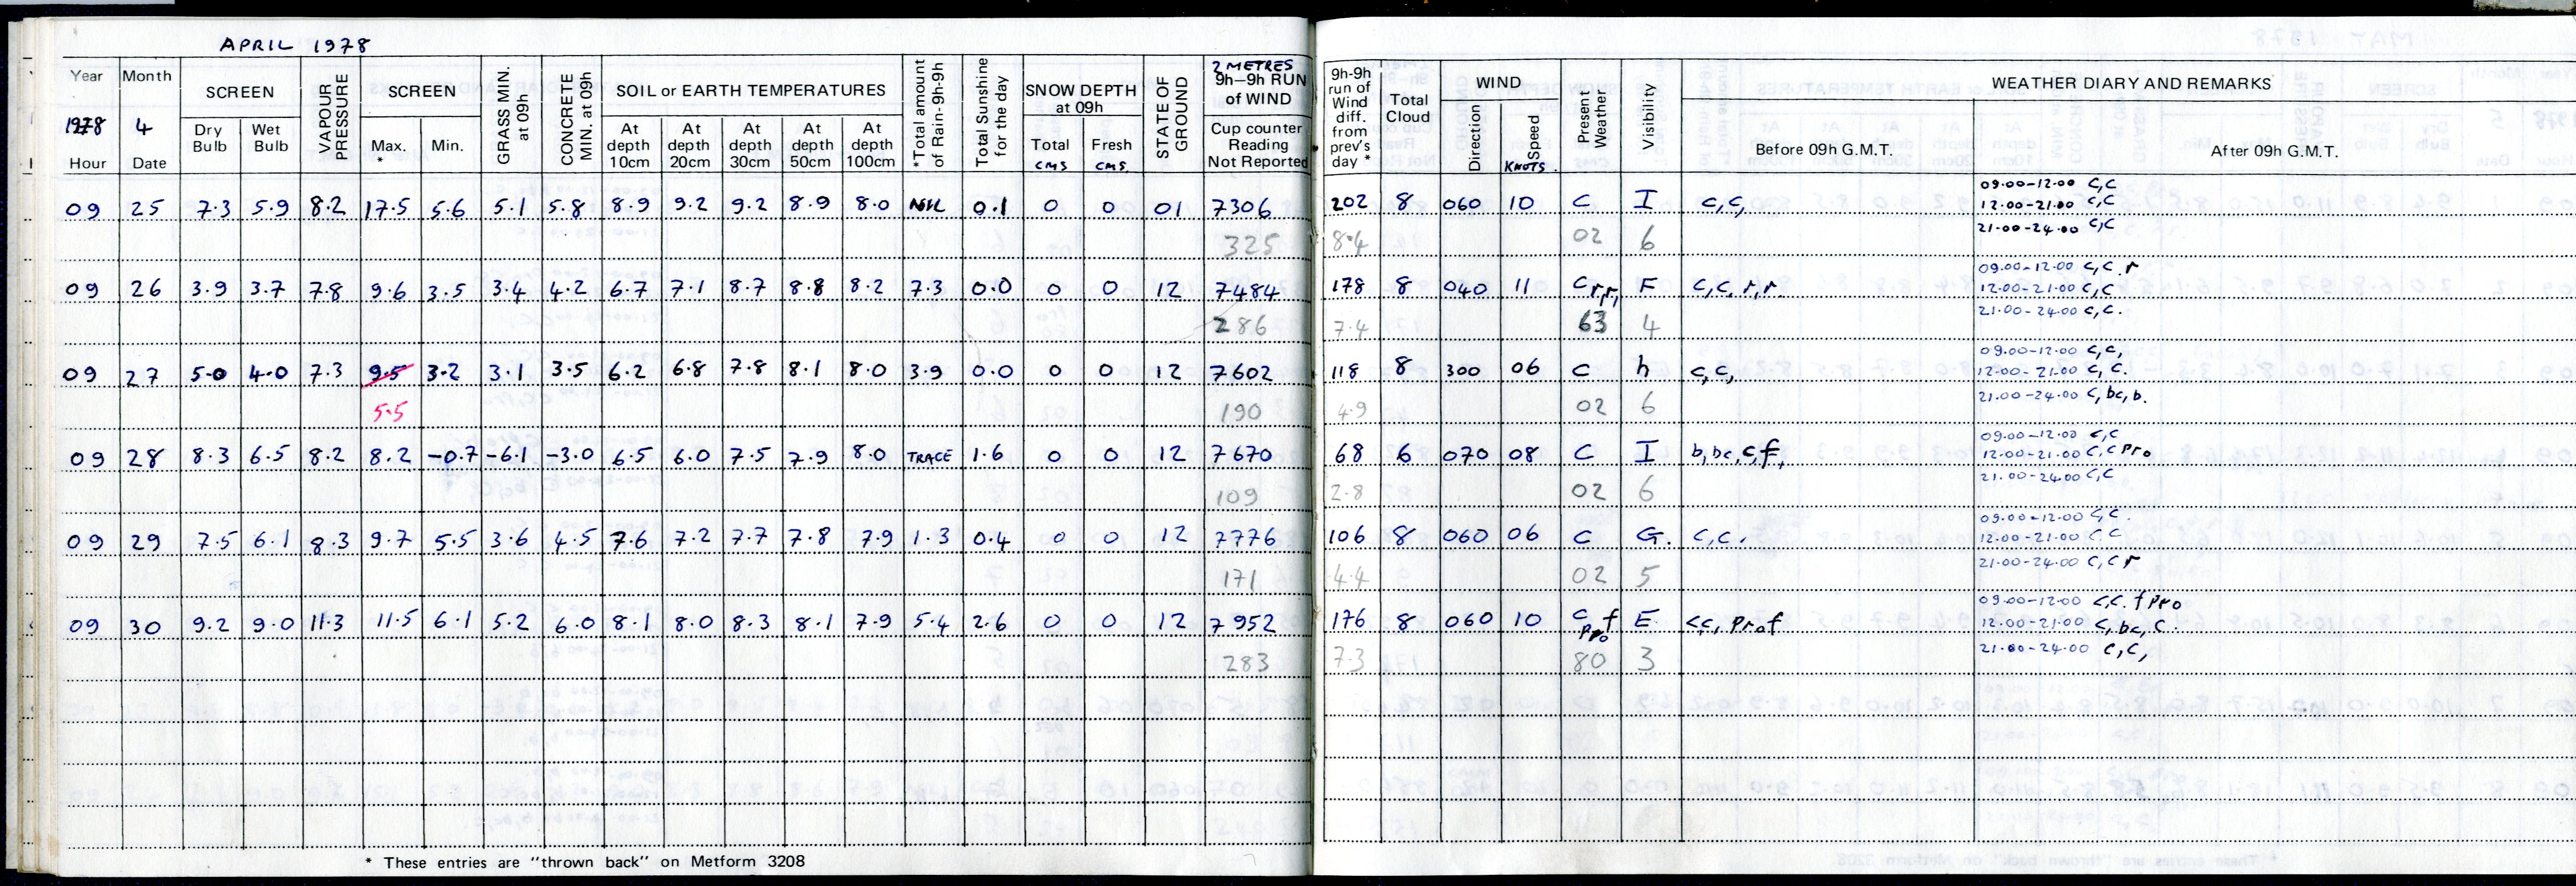 APRIL 1978
Year Month SCREEN VAPOUR PRESSURE SCREEN GRASS MIN. at 09h CONCRETE MIN. at 09h SOIL or EARTH TEMPERATURES *Total amount of Rain-9h-9h Total Sunshine for the day SNOW DEPTH at 09h STATE OF GROUND 2 METRES 9h–9h RUN of WIND 9h-9h run of Wind diff. from prev's day * Total Cloud WIND Present Weather Visibility WEATHER DIARY AND REMARKS
1978 4 Dry Bulb Wet Bulb Max. * Min. At depth 10cm At depth 20cm At depth 30cm At depth 50cm At depth 100cm Total CMS Fresh CMS. Cup counter Reading Not Reported Direction Speed KNOTS. Before 09h G.M.T. After 09h G.M.T.
Hour Date
09.00-12.00 C,C
09 25 7.3 5.9 8.2 17.5 5.6 5.1 5.8 8.9 9.2 9.2 8.9 8.0 NIL 0.1 0 0 01 7306 202 8 060 10 C I C,C, 12.00-21.00 C,C
21.00-24.00 C,C
325 8.4 02 6
09.00-12.00 C,C. r
09 26 3.9 3.7 7.8 9.6 3.5 3.4 4.2 6.7 7.1 8.7 8.8 8.2 7.3 0.0 0 0 12 7484 178 8 040 11 C r,r, F C,C, r,r. 12.00-21.00 C,C
21.00-24.00 C,C.
286 7.4 63 4
09.00-12.00 C,C,
09 27 5.0 4.0 7.3 9.5 3.2 3.1 3.5 6.2 6.8 7.8 8.1 8.0 3.9 0.0 0 0 12 7602 118 8 300 06 C h C,C, 12.00-21.00 C, C.
21.00-24.00 C, bc, b.
5.5 190 4.9 02 6
09.00-12.00 C,C
09 28 8.3 6.5 8.2 8.2 -0.7 -6.1 -3.0 6.5 6.0 7.5 7.9 8.0 TRACE 1.6 0 0 12 7670 68 6 070 08 C I b,bc,C,f, 12.00-21.00 C,C Pro
21.00-24.00 C,C
109 2.8 02 6
09.00-12.00 C,C.
09 29 7.5 6.1 8.3 9.7 5.5 3.6 4.5 7.6 7.2 7.7 7.8 7.9 1.3 0.4 0 0 12 7776 106 8 060 06 C G. C,C. 12.00-21.00 C.C
21.00-24.00 C,C r
171 4.4 02 5
09.00-12.00 C,C. f Pro
09 30 9.2 9.0 11.3 11.5 6.1 5.2 6.0 8.1 8.0 8.3 8.1 7.9 5.4 2.6 0 0 12 7952 176 8 060 10 C f Pro E. CC, Prof 12.00-21.00 C, bc, C.
21.00-24.00 C,C,
283 7.3 80 3
* These entries are "thrown back" on Metform 3208